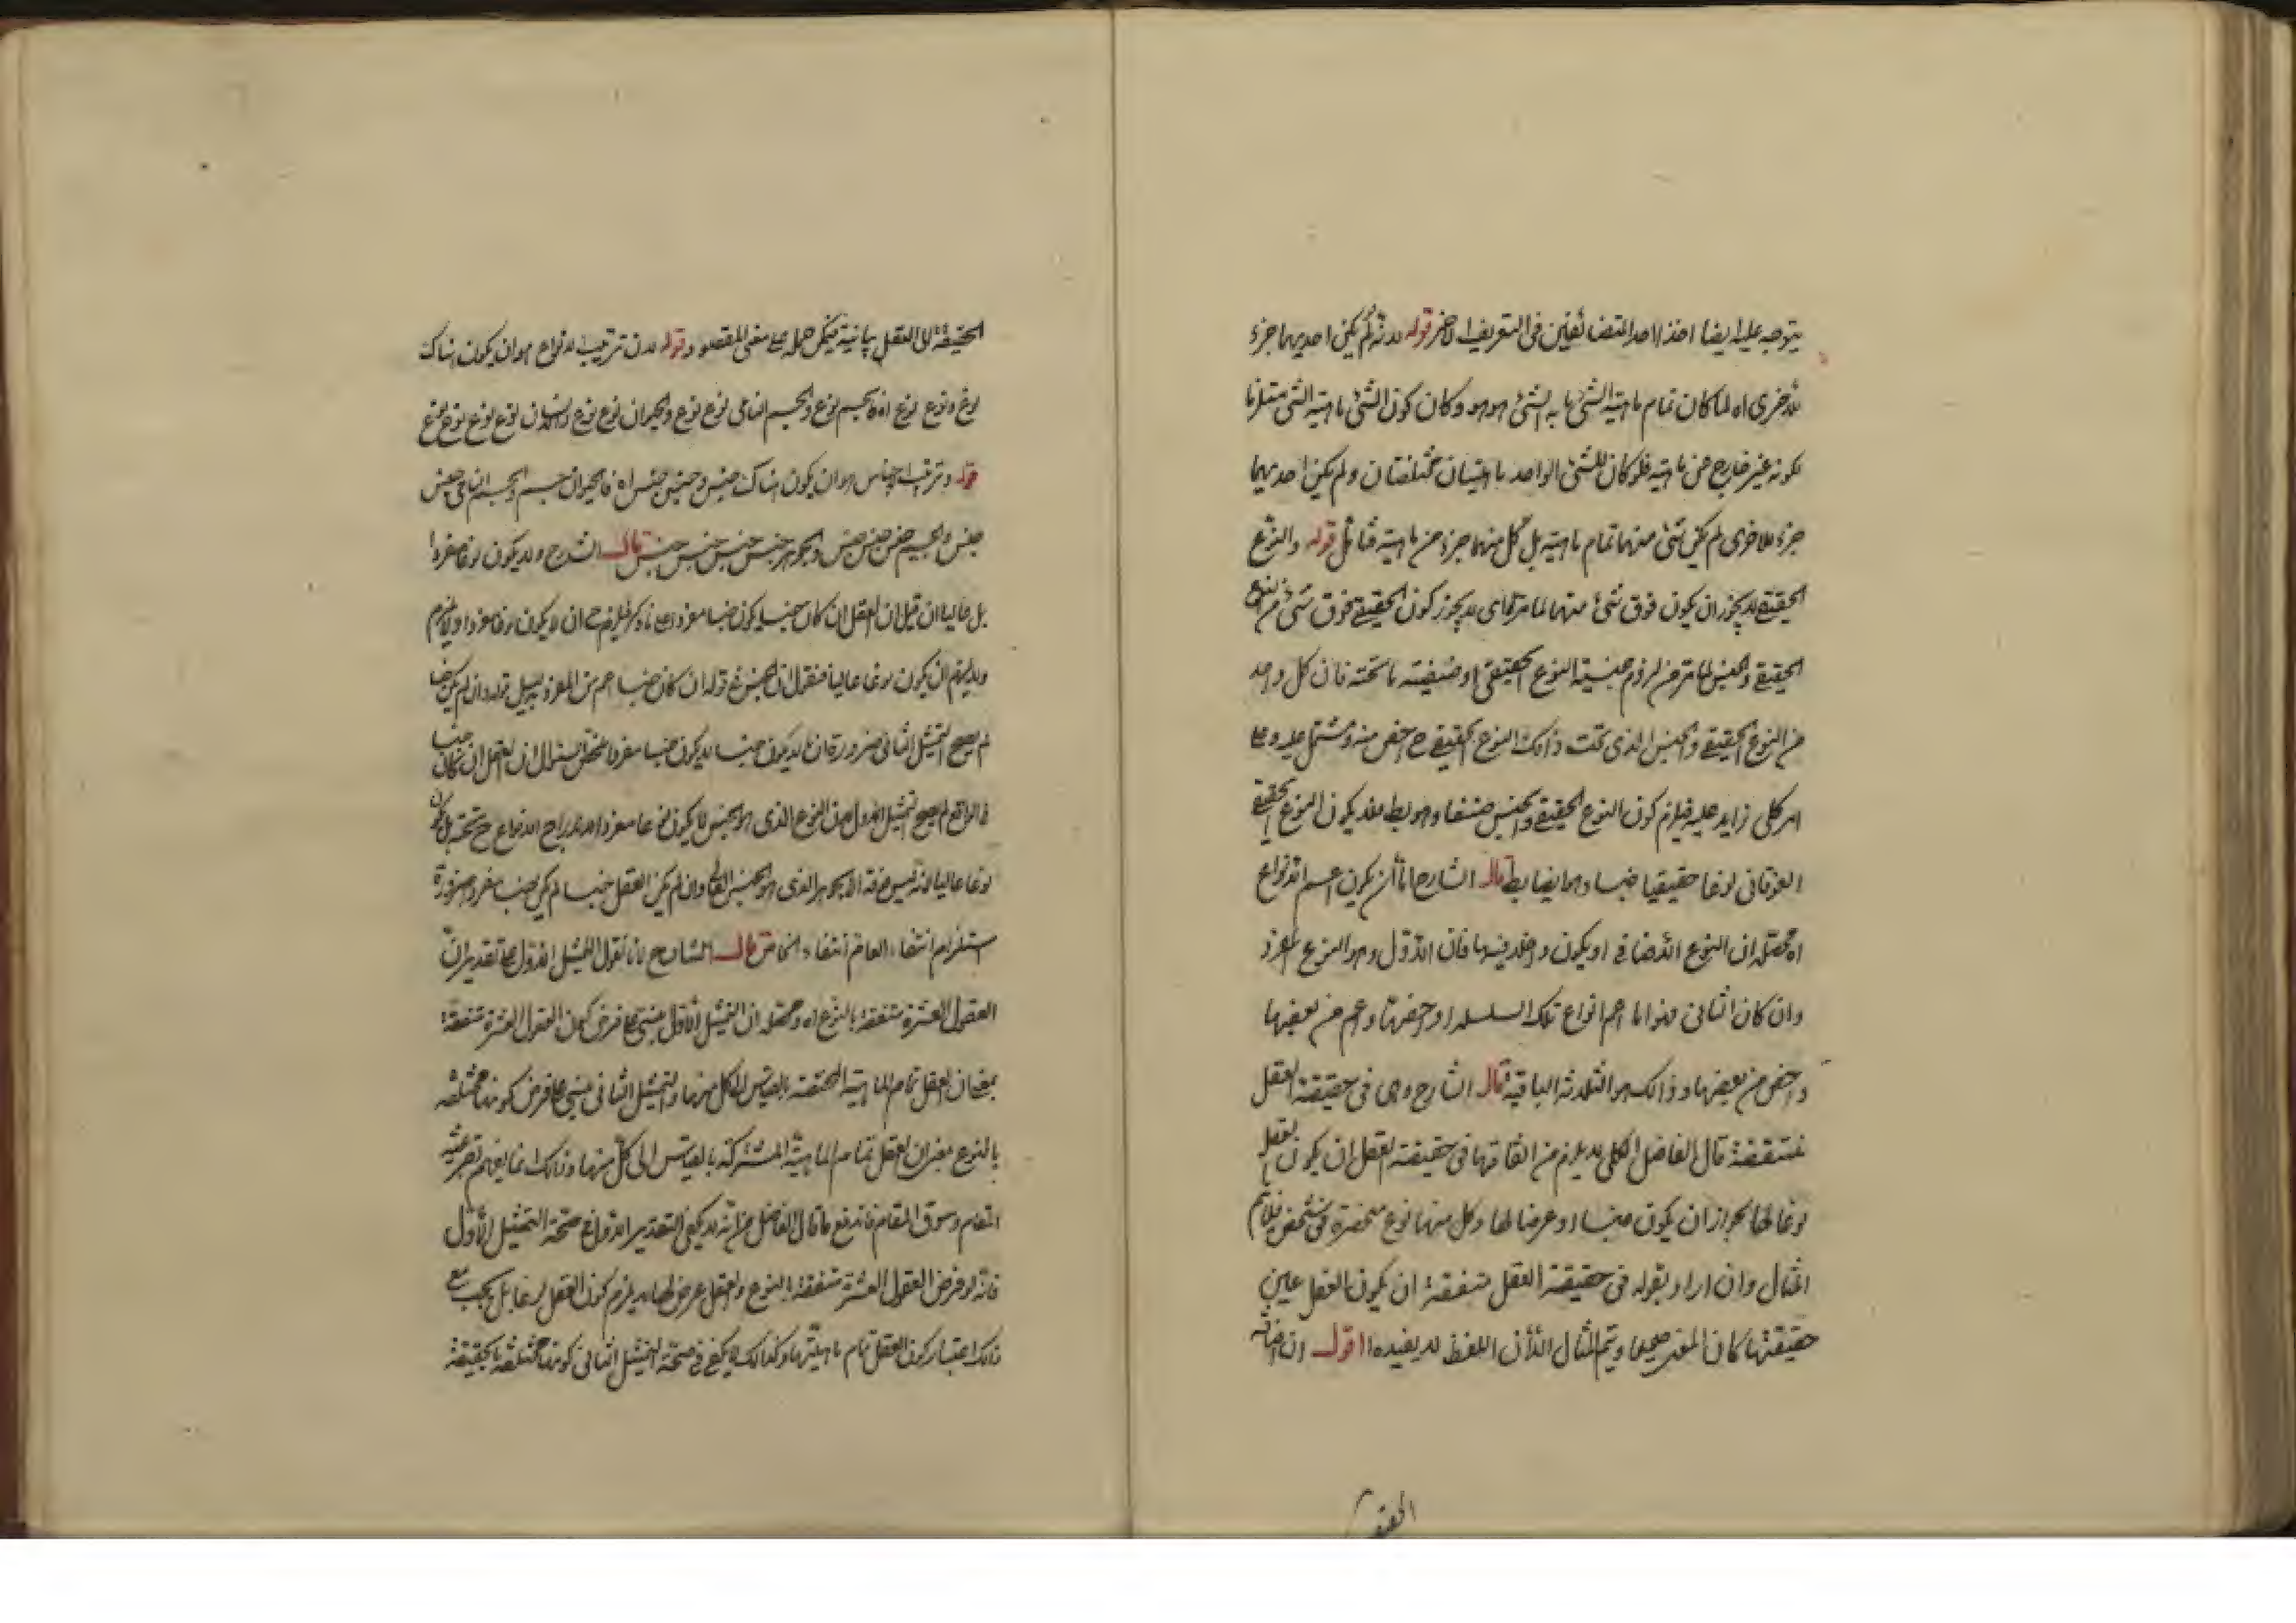 يتوجه عليه ايضا اخذ احد المتضائفين فى التعريف الاخر قوله لانه لم يكن احديهما جزء
للاخرى اه لما كان تمام ماهية الشئ ما به الشئ هو هو وكان كون الشئ ماهية الشئ مستلزما
لكونه غير خارج عن ماهيته فلو كان للشئ الواحد ماهيتان مختلفتان ولم يكن احديهما
جزء للاخرى لم يكن شئ منهما تمام ماهيته بل كل منهما جزء من ماهيته فتامل قوله والنوع
الحقيقى لا يجوز ان يكون فوق شئ منهما لما مر اى لا يجوز كون الحقيقى فوق شئ من النوع
الحقيقى والجنس لما مر من لزوم جنسية النوع الحقيقى او صنفية ما تحته فان كل واحد
من النوع الحقيقى والجنس الذى تحت ذلك النوع الحقيقى ح اخص منه ومشتمل عليه وعلى
امر كلى زايد عليه فيلزم كون النوع الحقيقى والجنس صنفا وهو بط فلا يكون النوع الحقيقى
الفوقانى نوعا حقيقيا جنسا وهو ايضا بط قال الشارح اما ان يكون اعم الانواع
اه محصله ان النوع الاضافى او يكون داخلا فيها فان الاول وهو النوع المفرد
وان كان الثانى فهو اما اعم انواع تلك السلسله او اخصها او اعم من بعضها
واخص من بعضها وذلك هو الثلاثة الباقية قال الشارح وهى فى حقيقة العقل
متفقة قال الفاضل الكلى لا يلزم من اتفاقها فى حقيقة العقل ان يكون العقل
نوعا لها لجواز ان يكون جنسا او عرضا لها وكل منها نوع منحصرة فى شخص فلا يتم
المثال وان اراد بقوله فى حقيقة العقل متفقة ان يكون العقل عين
حقيقتها كان المعنى صحيحا ويتم المثال الا ان اللفظ لا يفيده اقول ان اضافة
الحقيقة
الحقيقة الى العقل بيانية فيمكن حمله على معنى المقصود وقوله لان ترتيب الانواع هو ان يكون هناك
نوع ونوع نوع اه فالجسم نوع والجسم النامى نوع نوع والحيوان نوع نوع نوع والانسان نوع نوع نوع نوع
قوله وترتيب الاجناس هو ان يكون هناك جنس وجنس جنس اه فالحيوان جنس والجسم النامى جنس
جنس والجسم جنس جنس جنس والجوهر جنس جنس جنس جنس قال الشارح ولا يكون نوعا مفردا
بل عاليا ان قيل ان العقل ان كان جنسا يكون جنسا مفردا على ما ذكر فيلزم ح ان لا يكون نوعا مفردا ولا يلزم
ولا يلزم ان يكون نوعا عاليا فنقول ان الجنس فى قوله ان كان جنسا اعم من المفرد بدليل قوله وان لم يكن جنسا
لم يصح التمثيل الثانى ضرورة ان ما لا يكون جنسا لا يكون جنسا مفردا فمحصل السؤال ان العقل ان كان جنسا
فى الواقع لم يصح التمثيل الاول لان النوع الذى هو الجنس لا يكون نوعا مفردا لاندراج الانواع ح تحته بل يكون
نوعا عاليا لانه ليس فوقه الا الجوهر الذى هو الجنس العالى وان لم يكن العقل جنسا لم يكن جنسا مفردا ضرورة
استلزام انتفاء العام انتفاء الخاص قال الشارح لانا نقول التمثيل الاول على تقدير ان
العقول العشرة متفقة بالنوع اه ومحصله ان التمثيل الاول مبنى على فرض كون العقول العشرة متفقة
بمعنى ان العقل تمام الماهية المختصة بالقياس الى كل منها والتمثيل الثانى مبنى على فرض كونها مختلفة
بالنوع بمعنى ان العقل تمام الماهية المشتركة بالقياس الى كل منها وذلك انما يفهم بقرينة
المقام وسوق المقام فاندفع ما قال الفاضل من انه لا يكفى التقدير الاول فى صحة التمثيل الاول
فانه لو فرض العقول العشرة متفقة بالنوع والعقل عرض لها لا يلزم كون العقل نوعا بل يجب مع
ذلك اعتبار كون العقل تمام ماهيتها وكذلك لا يكفى فى صحة التمثيل الثانى كونها مختلفة بالحقيقة